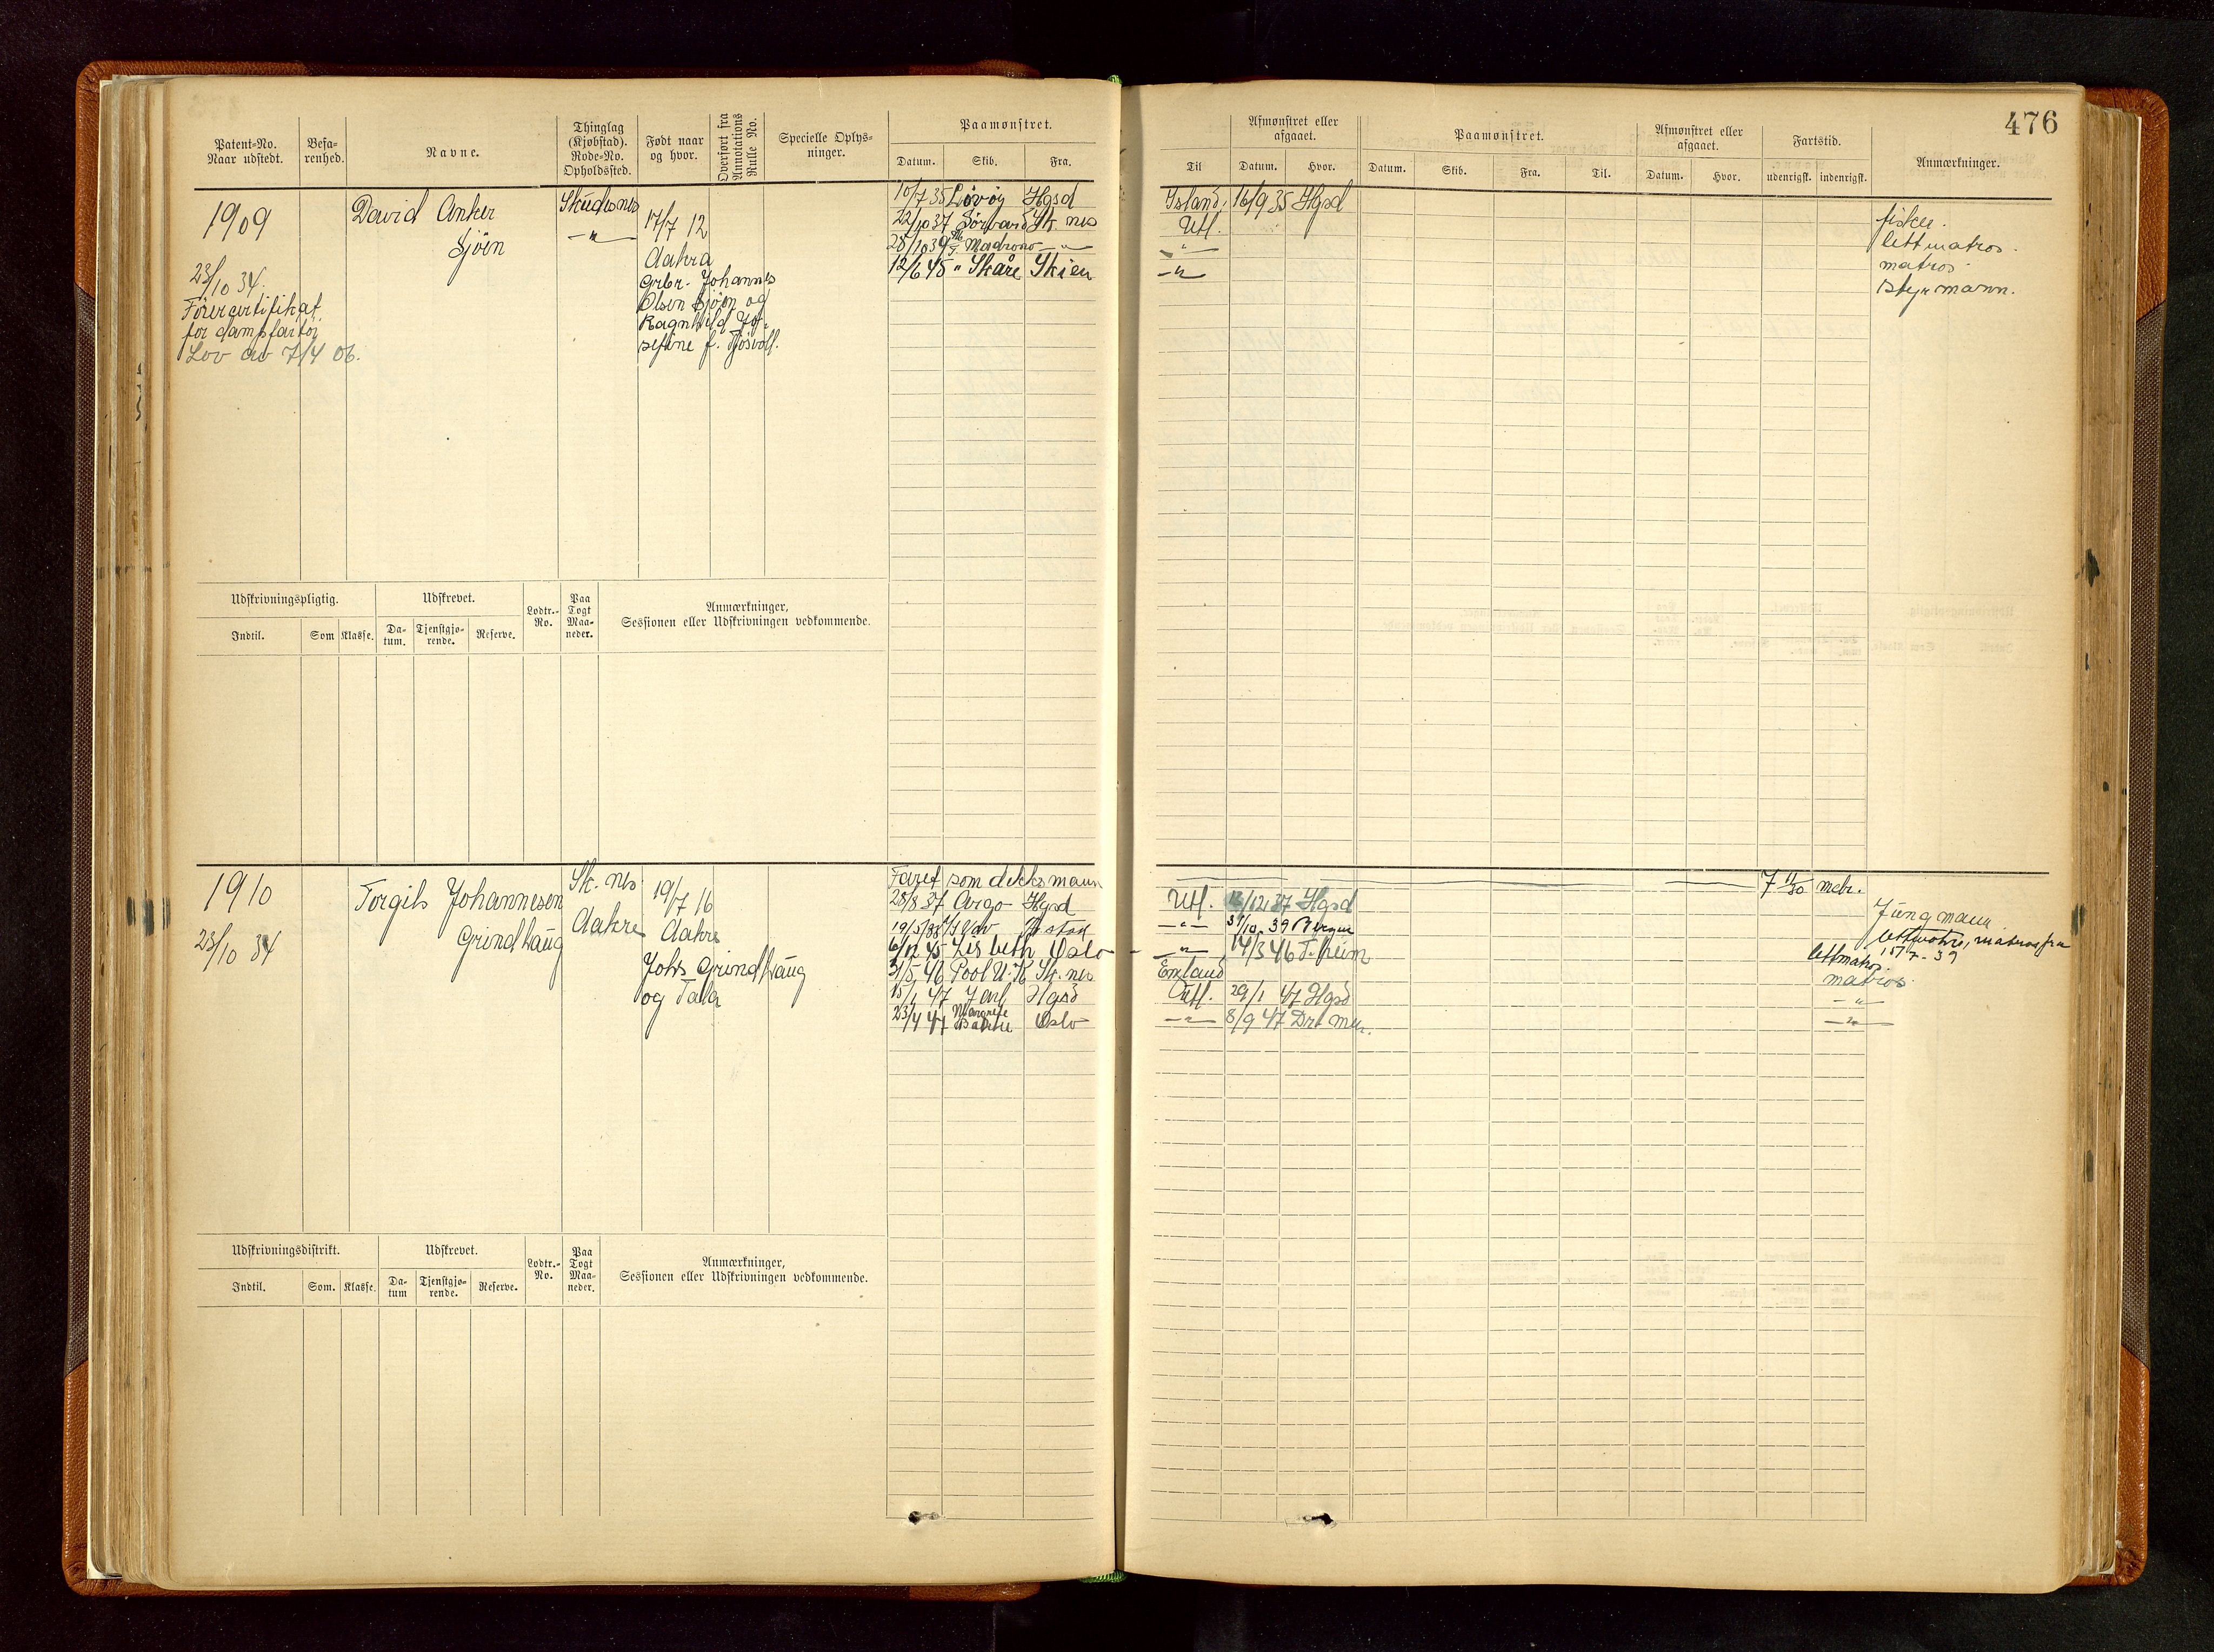 476
Patent-No. Naar udstedt.
Befarenhed.
Navne.
Thinglag (Kjøbstad). Rode-No. Opholdssted.
Født naar og hvor.
Overført fra Annotations Rulle No.
Specielle Oplysninger.
Paamønstret.
Datum. Skib. Fra.
Til
Afmønstret eller afgaaet.
Datum. Hvor.
Paamønstret.
Datum. Skib. Fra. Til.
Afmønstret eller afgaaet.
Datum. Hvor.
Fartstid.
udenrigsk. indenrigsk.
Anmærkninger.
1909
23/10 34.
Förercertifikat
for dampfartøi
Lov av 7/4 06.
David Anker
Sjöen
Skudesnes
—"—
17/7 12
Aakra
Grbr. Johannes
Olsen Sjöen og
Ragnhild Jo-
sefine f.
10/7 35 Lövöy Hgsd Island, 16/9 35 Hgsd fisker.
22/10 37 Sörvard Sk.nes Utl. lettmatros.
28/10 39 Madrono —"— —"— matros
12/6 45 " Skåre Skien —"— Styrmann.
Udskrivningspligtig.
Udskrevet.
Lodtr.-No.
Paa Togt Maaneder.
Anmærkninger,
Sessionen eller Udskrivningen vedkommende.
Indtil. Som Klasse. Datum. Tjenstgjørende. Reserve.
1910
23/10 34
Torgils Johannesen
Grindhaug
Sk. nes
Aakre
19/7 16
Aakre
Johs Grindhaug
og Tala
Faret som dekksmann 7 11/30 mdr.
28/8 37 Argo Hgsd Utl. 13/12 37 Hgsd Jungmann
19/5 38 —"— 31/10 39 Bergen lettmatros, matros fra
6/12 45 Lisbeth Oslo —"— 14/3 46 T.heim lettmatros
3/5 46 Pool U.K Sk.nes England matros
15/1 47 Jarl Hgsd Utl. 29/1 47 Hgsd —"—
23/4 47 Margrethe Bakke Oslo —"— 8/9 47 Drammen. —"—
Udskrivningsdistrikt.
Udskrevet.
Lodtr.-No.
Paa Togt Maaneder.
Anmærkninger,
Sessionen eller Udskrivningen vedkommende.
Indtil. Som. Klasse. Datum Tjenstgjørende. Reserve.